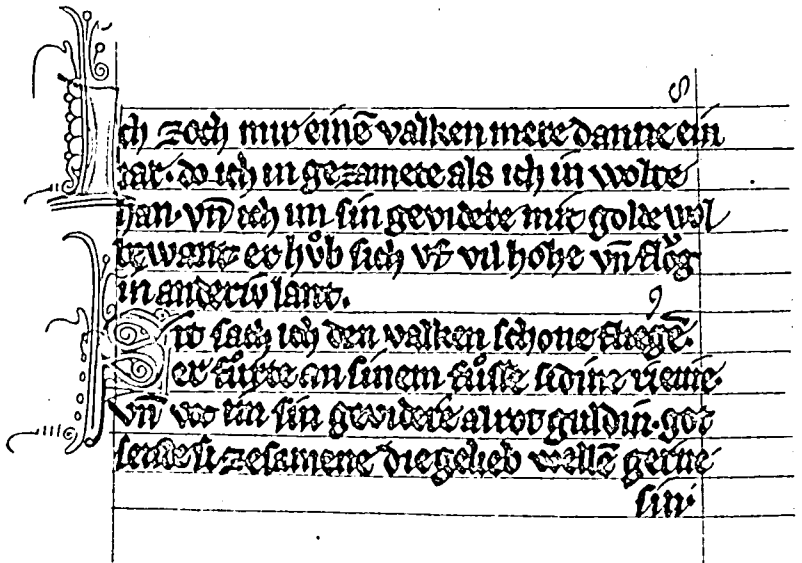 Ich zoch mir einē valken mere danne ein
iar· do ich in gezamete als ich in wolte
han· vn̄ ich im sin gevidere mit golde wol
bewant er hůb sich vf vil hohe vn̄ flǒg
in anderiv lant.
Sit sach ich den valken schone fliegē·
er fůrte an sinem fůsse sidine rieme·
vn̄ was im sin gevidere alrot guldin· got
sende si zesamene die gelieb wellē gerne
sin·